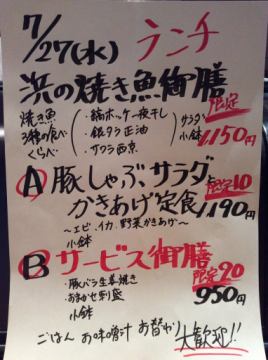 7/27(水) ランチ
浜の焼き魚御膳
限定
焼き魚
3種の食べ
くらべ
・縞ホッケ一夜干し
・銀タラ正油
・サワラ西京
サラダ
小鉢
1150円
A 豚しゃぶサラダ
限定10
かきあげ定食
1190円
〜エビ、イカ、野菜かきあげ〜
小鉢
B サービス御膳
限定20
・豚バラ生姜焼き
950円
・おまかせ刺盛
小鉢
ごはん お味噌汁 お替わり
大歓迎!!